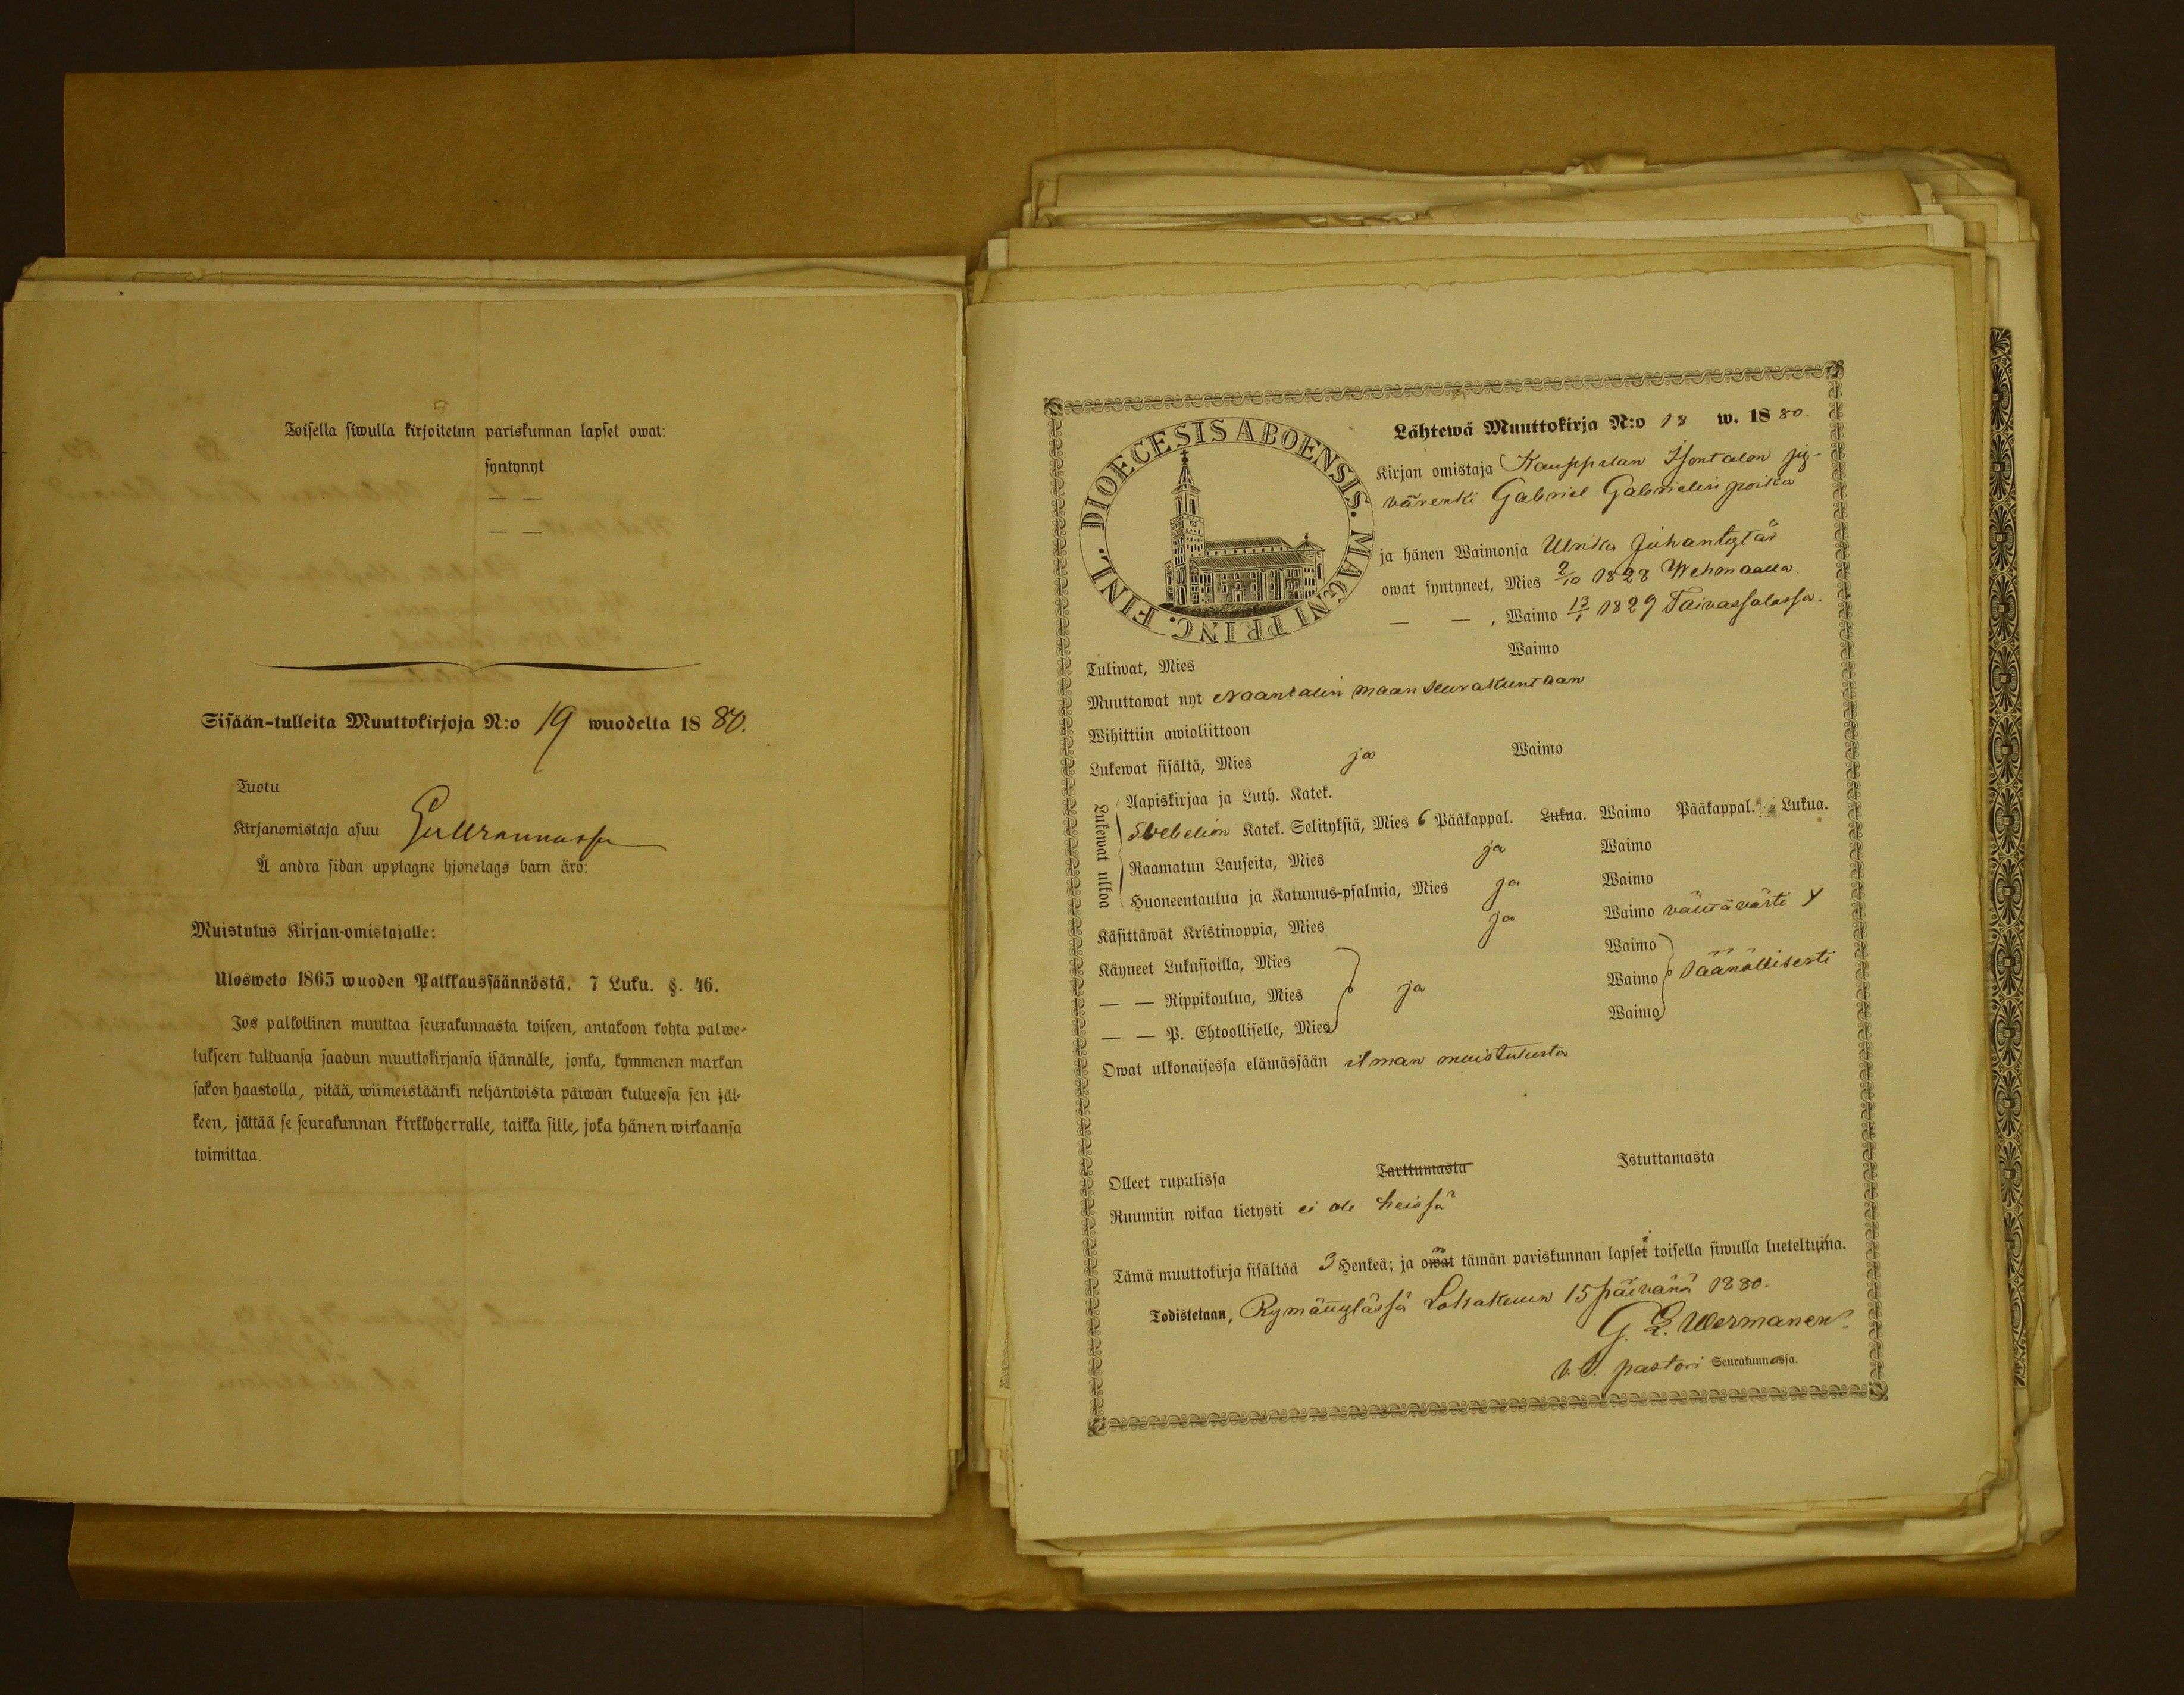 Toisella siwulla kirjoitetun pariskunnan lapset owat:
syntynyt
— —
— —
Sisään-tulleita Muuttokirjoja N:o 19 wuodelta 1880.
Tuotu
Kirjanomistaja asuu Gullrannassa
Å andra sidan upptagne hjonelags barn äro:
Muistutus Kirjan-omistajalle:
Ulosweto 1865 wuoden Palkkaussäännöstä. 7 Luku. §. 46.
Jos palkollinen muuttaa seurakunnasta toiseen, antakoon kohta palwe-
lukseen tultuansa saadun muuttokirjansa isännälle, jonka, kymmenen markan
sakon haastolla, pitää, wiimeistäänki neljäntoista päiwän kuluessa sen jäl-
keen, jättää se seurakunnan kirkkoherralle, taikka sille, joka hänen wirkaansa
toimittaa.
DIOECESIS ABOENSIS. MAGNI PRINC. FINL.
Lähtewä Muuttokirja N:o 18 w. 1880.
Kirjan omistaja Kauppilan Isontalon
Gabriel Gabrielin poika
ja hänen Waimonsa Ulrika Juhantytär
owat syntyneet, Mies 2/10 1828 Wehmaalla.
— — , Waimo 13/1 1829 Taivassalassa.
Tuliwat, Mies Waimo
Muuttawat nyt Naantalin maan seurakuntaan
Wihittiin awioliittoon
Lukewat sisältä, Mies ja Waimo
Lukewat ulkoa
Aapiskirjaa ja Luth. Katek.
Svebelion Katek. Selityksiä, Mies 6 Pääkappal. Lukua. Waimo Pääkappal. Lukua.
Raamatun Lauseita, Mies ja Waimo
Huoneentaulua ja Katumus-psalmia, Mies ja Waimo
Käsittäwät Kristinoppia, Mies ja Waimo välttävästi
Käyneet Lukusioilla, Mies Waimo
— — Rippikoulua, Mies ja Waimo säänöllisesti
— — P. Ehtoolliselle, Mies Waimo
Owat ulkonaisessa elämässään ilman muistutusta
Olleet rupulissa Tarttumasta Istuttamasta
Ruumiin wikaa tietysti ei ole heissä
Tämä muuttokirja sisältää 3 Henkeä; ja on tämän pariskunnan lapsi toisella siwulla lueteltuna.
Todistetaan, Rymättylässä Lokakuun 15 päivänä 1880.
G. L. Wermanen.
v. t. pastori Seurakunnassa.